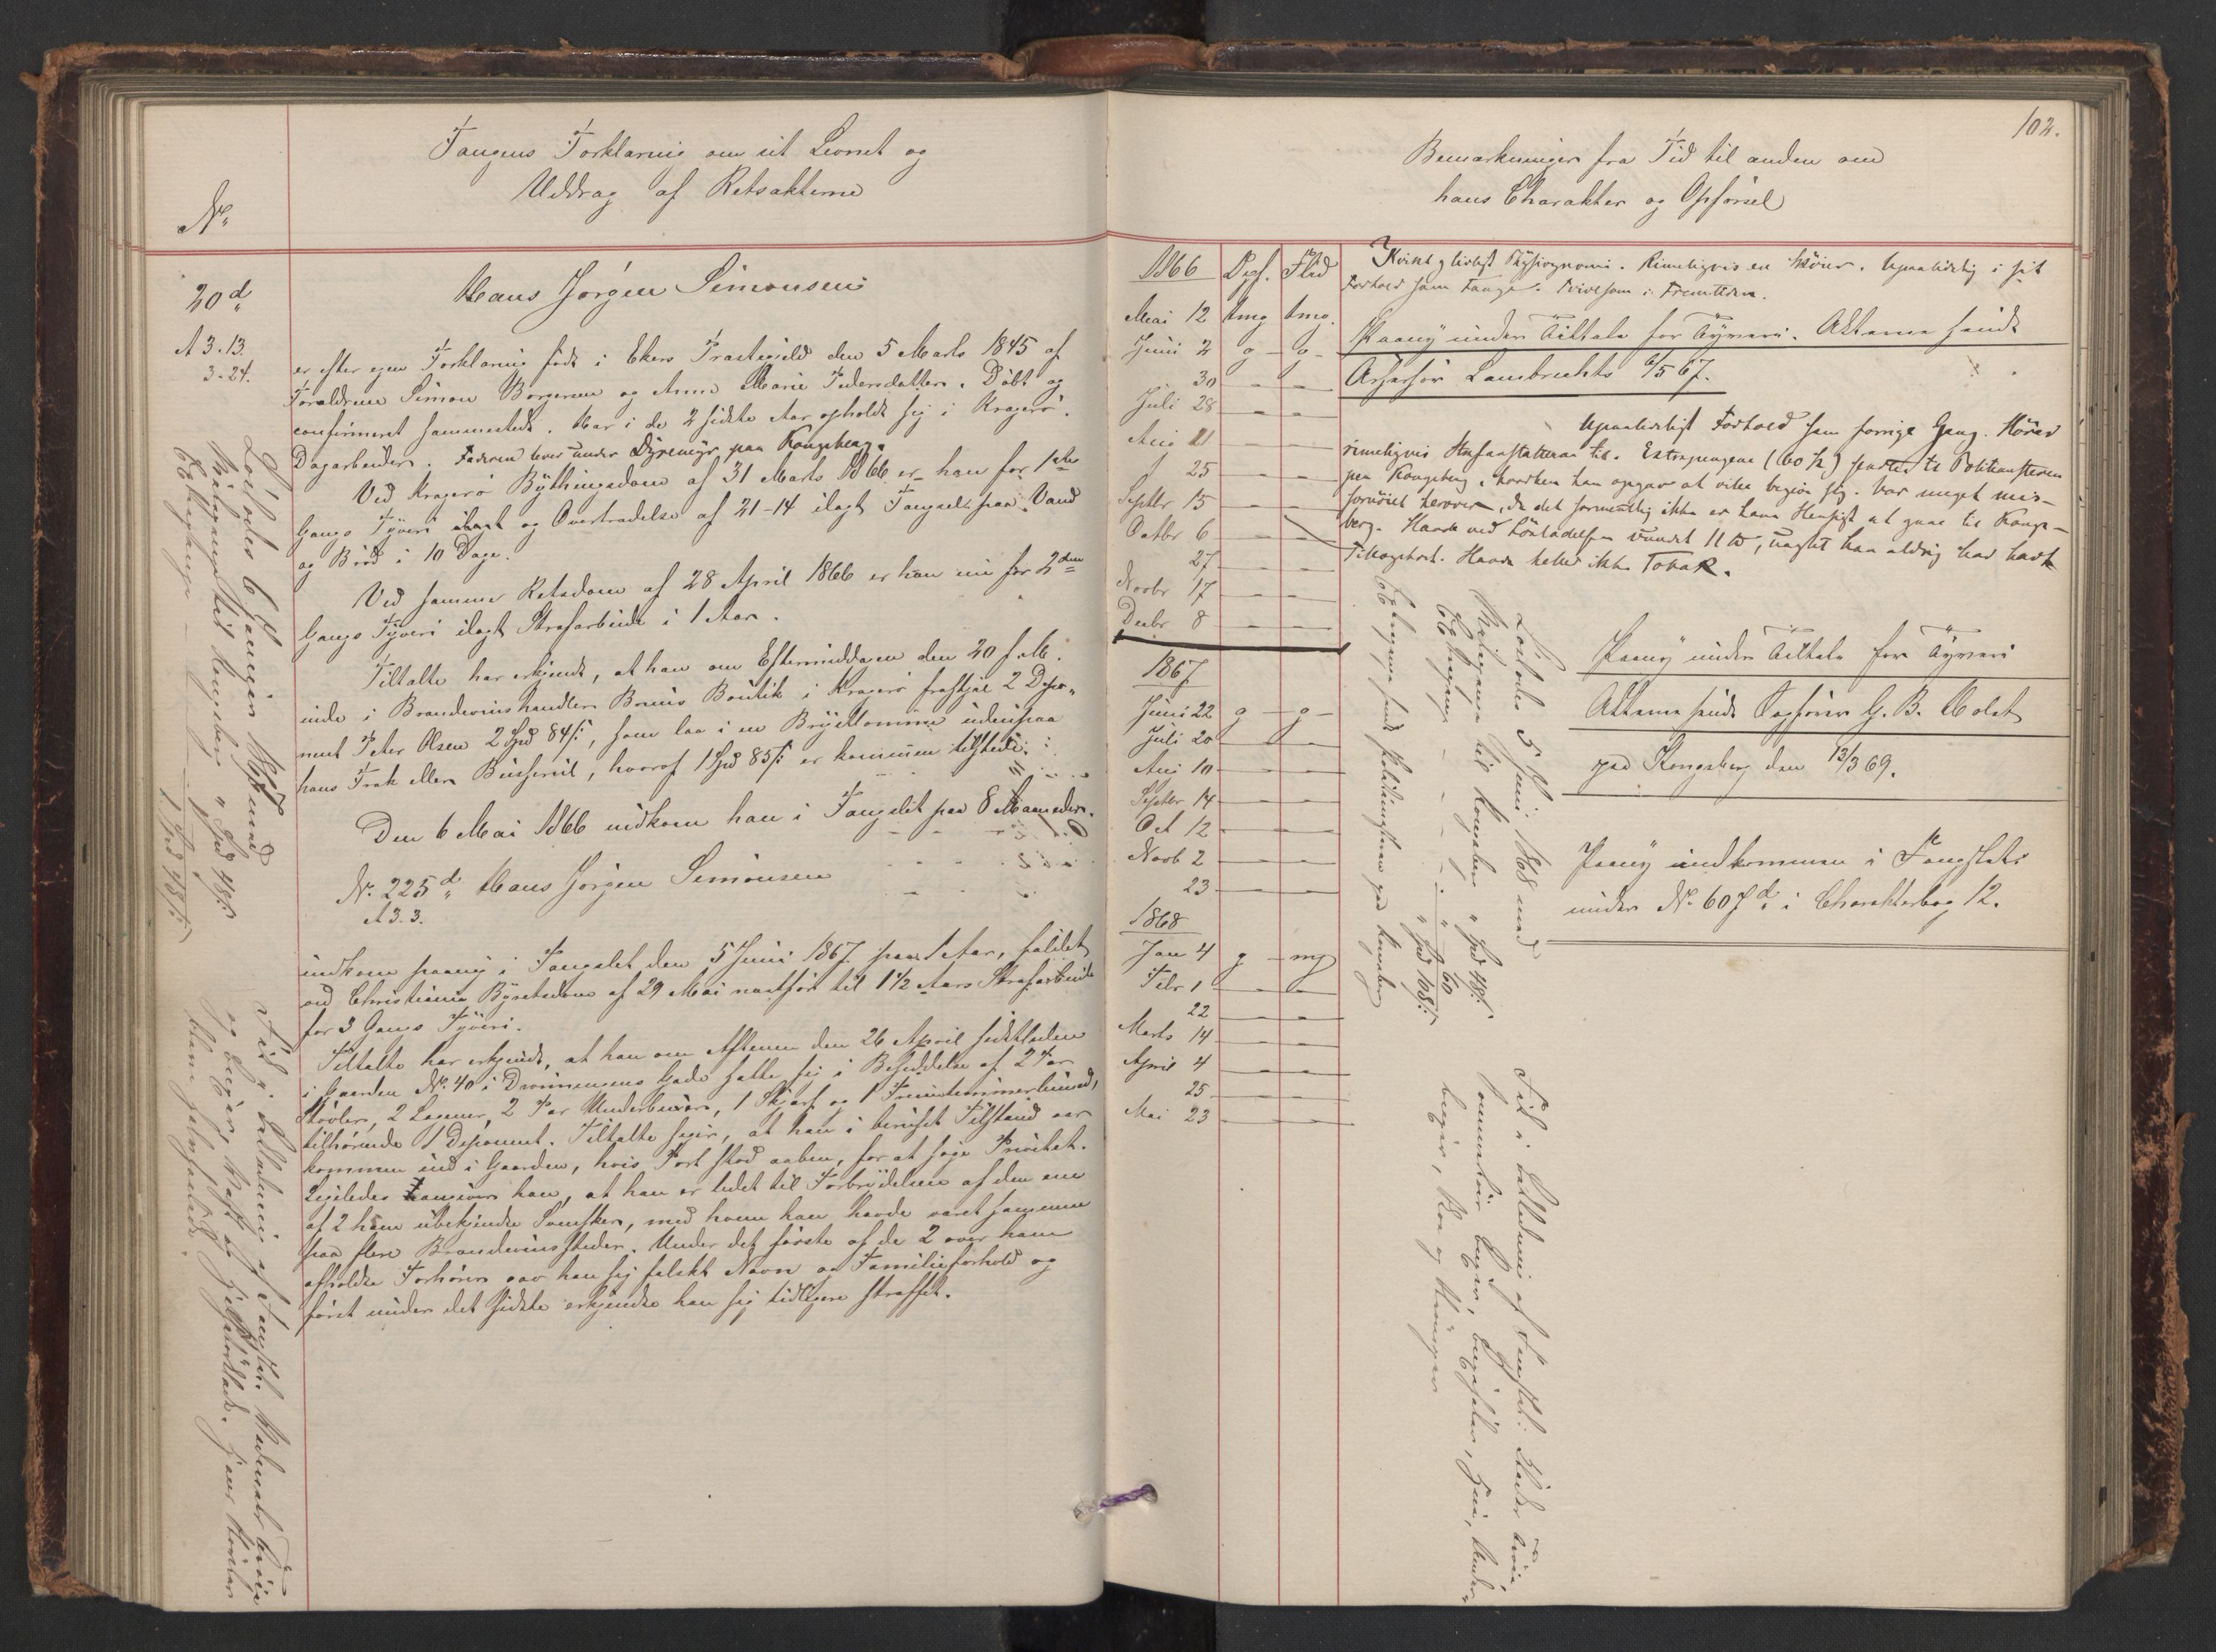 Fangens Forklaring om sit Levnet og
Uddrag af Retsakterne
No
20d
A 3.13.
3-24.
Hans Jörgen Simonsen
er efter egen Forklaring född i Ekers Præstegield den 5 Marts 1845 af
Forældrene Simon Borgersen og Anne Marie Pedersdatter. Döbt og
confirmeret sammesteds. Har i de 2 sidste Aar opholdt sig i Kragerö.
Dagarbeider. Faderen lever under Dyremyr paa Kongsberg.
Ved Kragerö Bythingsdom af 31 Marts 1866 er han for 1ste
Gangs Tyveri ilagt og Overtrædelse af 21-14 ilagt Fængsel paa Vand
og Bröd i 10 Dage.
Ved samme Retsdom af 28 April 1866 er han nu for 2den
Gangs Tyveri ilagt Strafarbeide i 1 Aar.
Tiltalte har erkjendt, at han om Eftermiddagen den 20 f. M.
inde i Brændevinshandler Bruus Boutik i Kragerö frastjal 2 Depo-
nent Peter Olsen 2 Spd 84 ß, som laa i en Brystlomme udenpaa
hans Frak eller Busserul, hvoraf 1 Spd 85 ß er kommen tilstede.
Den 6 Mai 1866 indkom han i Fængslet paa 8 Maaneder.
No. 225d Hans Jörgen Simonsen
A 3. 3.
indkom paany i Fængslet den 5 Juni 1867 paa 1 Aar, fældet
ved Christiania Byretsdom af 29 Mai næstför til 1 1/2 Aars Strafarbeide
for 3 Gangs Tyveri.
Tiltalte har erkjendt, at han om Aftenen den 26 April sidstleden
i Gaarden No. 40 i Dronningens Gade satte sig i Besiddelse af 2 Par
Stövler, 2 Lagener, 2 Par Underbuxer, 1 Skjærf og 1 Fruentimmerlinned,
tilhörende 1 Deponent. Tiltalte siger, at han i beruset Tilstand var
kommen ind i Gaarden, hvis Port stod aaben, for at söge Privetet.
Ligeledes angiver han, at han er ledet til Forbrydelsen af den ene
af 2 ham ubekjendte Svensker, med hvem han havde været sammen
paa flere Brændevinssteder. Under det förste af de 2 over ham
afholdte Forhörer gav han sig falskt Navn og Familieforhold og
först under det sidste erkjendte han sig tidligere straffet.
Löslodes 6 Januar 1867 med
Reisepenge til Kongsberg " Spd 48 ß
Extrapenge - 1 -
1 Spd 48 ß
Fik i Beklædning af Fængslet:
102.
Bemærkninger fra Tid til anden om
hans Charakter og Opförsel
1866 Opf. Flid
Mai 12 tmg tmg.
Juni 2 g - g -
30 - -
Juli 28 - -
Aug 11 - -
25 - -
Septbr 15 - -
Octbr 6 - -
27 - -
Novbr 17 - -
Decbr 8 - -
1867
Juni 22 g - g -
Juli 20 - -
Aug 10 - -
Septbr 14 - -
Oct 12 - -
Novb 2 - -
23 - -
1868
Jan 4 g - mg
Febr 1 - -
22 - -
Marts 14 - -
April 4 - -
25 - -
Mai 23 - -
Kvikt og livligt Physiognomi. Rimeligvis en Sköier. Upaalidelig i sit
Forhold som Fange. Tvivlsom i Fremtiden.
Paany under Tiltale for Tyveri. Akterne sendt
Assessor Lambrechts 6/5 67.
Upaalideligt Forhold som forrige Gang. Hörer
rimeligvis Strafanstalterne til. Extrapengene (60 ß) sendtes til Politimesteren
paa Kongsberg, hvorhen han opgav at ville begive sig. Var meget mis-
fornöiet herover, da det formentlig ikke er hans Hensigt at gaae til Kongs-
berg. Havde ved Lösladelsen vundet 11 W, uagtet han aldrig har havt
Tillægskost. Havde heller ikke Tobak.
Löslodes 5 Juni 1868 med
Reisepenge til Kongsberg " Spd 48 ß
Extrapenge - " - 60
" Spd 108 ß
Extrapengene sendt Politimesteren paa Kongsberg
Fik i Beklædning af Fængslet:
Paany under Tiltale for Tyveri
Akterne sendt Sagförer G. B. Molat
paa Kongsberg den 13/3 69.
Paany indkommen i Fængslet
under No. 607d i Charakterbog 12.